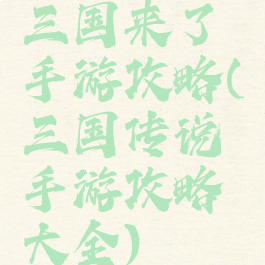 三国来了
手游攻略(
三国传说
手游攻略
大全)